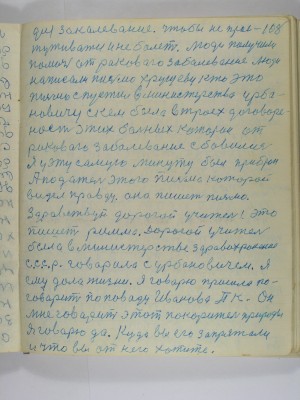 дил закалевание. чтобы не прас- 108
тужеватси и не болет. Люди получили
помоч от ракового забалевание люди
написали писмо хрущеву кто это
писмо спустил в министерства урба-
новичу с кем была встроех договоре-
ность этих болных которые от
ракового забалевание сбовился
я у эту самую минуту был прибран
А податель этого писмо которой
видел правду. она пишет писмо.
Здравствуй дорогой учител! это
пишет римма. Дорогой учител
была в министерстве здравохранения
С.С.С.Р. говарила с урбановичем. я
ему дала жизни. Я говарю пришла по-
говарит по поводу Иванова П.К. Он
мне говарит этот покарител природы
я говарю да. Куда вы его запрятали
и что вы от него хотите.